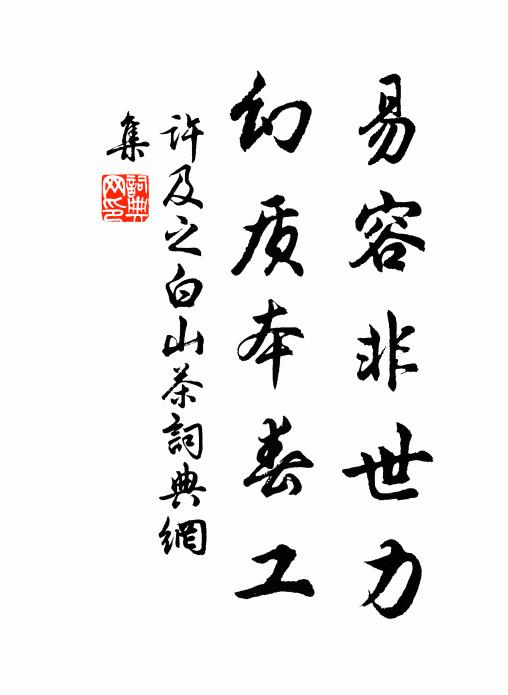 易容非世力
幻质本春工
許及之白山茶詞典網
集
詞典网印